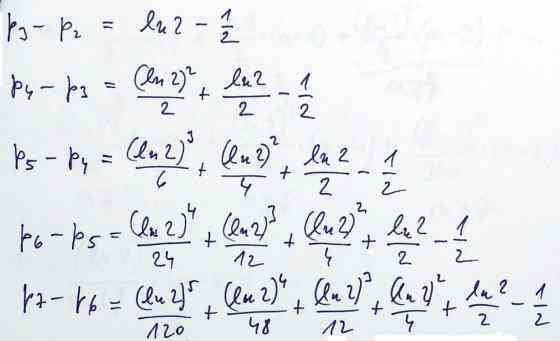 p₃ − p₂ = ln 2 − 1/2
p₄ − p₃ = (ln 2)²/2 + ln 2/2 − 1/2
p₅ − p₄ = (ln 2)³/6 + (ln 2)²/4 + ln 2/2 − 1/2
p₆ − p₅ = (ln 2)⁴/24 + (ln 2)³/12 + (ln 2)²/4 + ln 2/2 − 1/2
p₇ − p₆ = (ln 2)⁵/120 + (ln 2)⁴/48 + (ln 2)³/12 + (ln 2)²/4 + ln 2/2 − 1/2